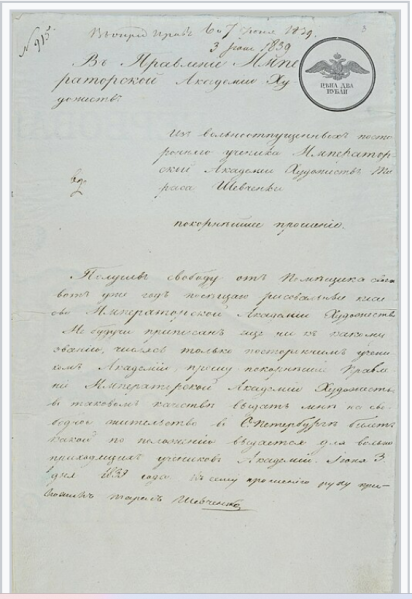 № 915.
7 июня 1839.
3 июня 1839
Въ Правленіе Импе-
раторской Академіи Ху-
дожествъ.
ЦѢНА ДВА
РУБЛИ
Изъ вольноотпущенныхъ посто-
ронняго ученика Император-
ской Академіи Художествъ Та-
раса Шевченки
покорнѣйшее прошеніе.
Получивъ свободу отъ Помѣщика
вотъ уже годъ посѣщаю рисовальные клас-
сы Императорской Академіи Художествъ
Не будучи приписанъ еще ни къ какому
званію, числясь только постороннимъ учени-
комъ Академіи, прошу покорнѣйше Правле-
ніе Императорской Академіи Художествъ,
въ таковомъ качествѣ выдать мнѣ на сво-
бодное жительство въ С.Петербургѣ билетъ
какой по положенію выдается для вольно
приходящихъ учениковъ Академіи. Іюня 3.
дня 1839 года. Къ сему прошенію руку при-
ложилъ Тарасъ Шевченко